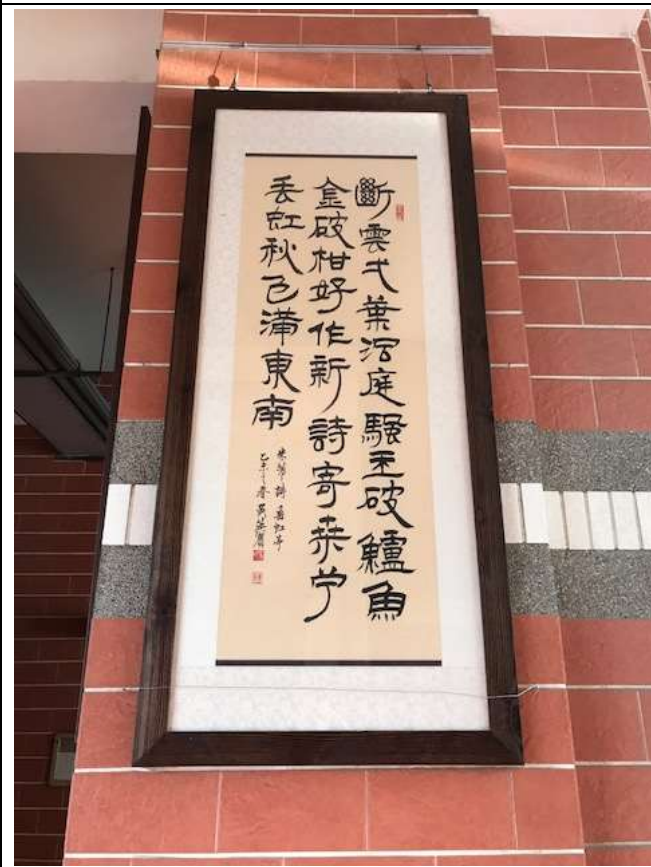 斷雲弌葉洞庭颿玉破鱸魚
金破柑好作新詩寄桒苧
垂虹秋色滿東南
米芾詩 垂虹亭
乙未之春